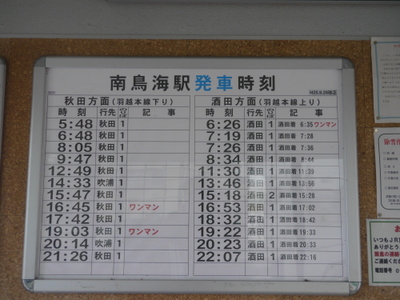 南鳥海駅発車時刻
秋田方面(羽越本線下り)
時刻 行先 記事
5:48 秋田 1
6:48 秋田 1
8:05 秋田 1
9:47 秋田 1
12:49 秋田 1
14:33 吹浦 1
15:47 秋田 1
16:45 秋田 1 ワンマン
17:42 秋田 1
19:03 秋田 1 ワンマン
20:14 吹浦 1
21:26 秋田 1
酒田方面(羽越本線上り)
時刻 行先 記事
6:26 酒田 1 酒田着 6:35 ワンマン
7:19 酒田 1 酒田着 7:28
7:26 酒田 1 酒田着 7:36
8:34 酒田 1 酒田着 8:44
11:30 酒田 1 酒田着
13:46 酒田 1 酒田着
15:18 酒田 2 酒田着
16:53 酒田 1 酒田着 17:02
18:32 酒田 1 酒田着 18:42
19:22 酒田 1 酒田着
20:23 酒田 1 酒田着 20:33
22:07 酒田 1 酒田着 22:16